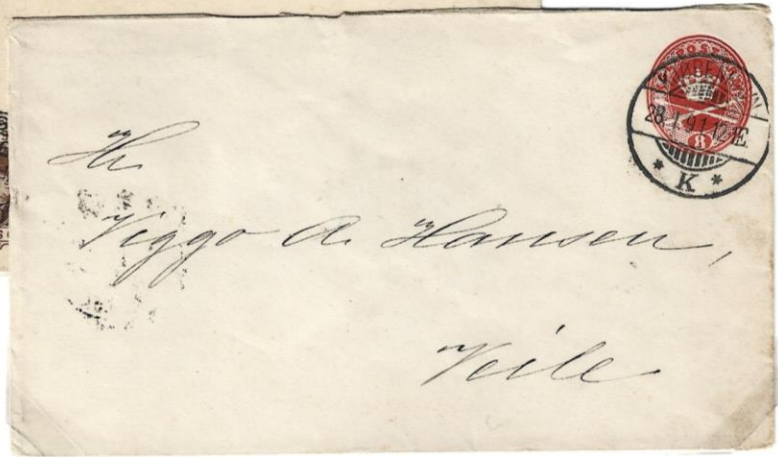 POST
KJØBENHAVN
8
* K *
Hr
Viggo A. Hansen,
Veile